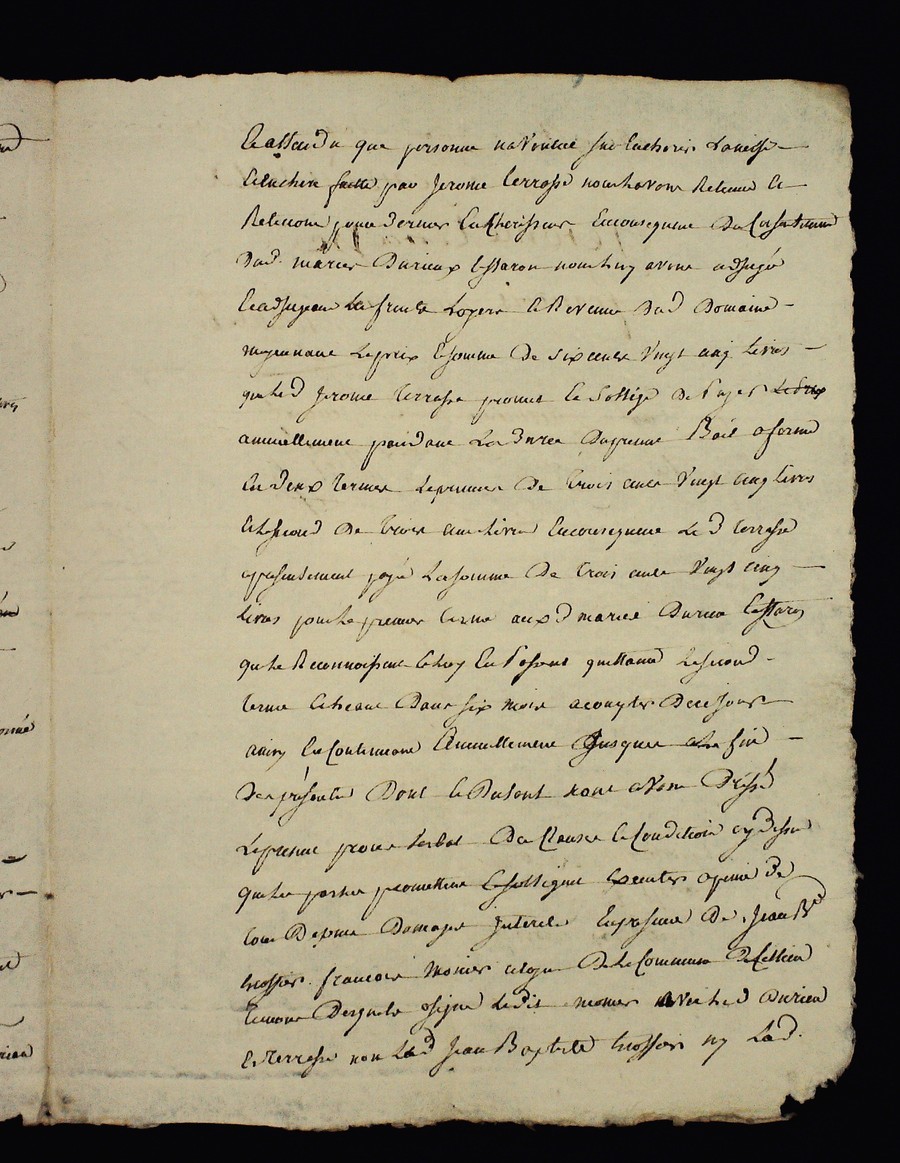 Et attendu que personne na voulut sur Encherir Lamisse
Et Enchere faitte par Jerome terrasse nous havons Retenue Et
Retenons pour dernier Encherisseur En consequence Du Consentement
Dud. mariés Durieux Essaron nous luy avons adjugé
Et adjugeons Les fruits Loyers Et Revenu Dud Domaine
moyennant Le prix Et somme De six cents vingt cinq livres
que Led Jerome terrasse promet Et soblige De Payer
annuellement pendant La Durée Du present Bail a ferme
En deux termes Le premier De trois cents Vingt Cinq livres
Et le second De trois cents livres En consequence Le d terrasse
a presentement payé La somme De trois cents Vingt cinq
livres pour le premier terme aux d mariés Durieu
qui le Reconnoissent Et luy En Passent quittance Le second
terme Echeant Dans six mois a compter De ce Jour
ainsy En Continuant Annuellement Jusques a la fin
Des présentes Dont Et Du tout nous avons Dréssé
Le present procès verbal Des Clauses Et Conditions cy dessus
que les parties promettent Et sobligent Executer a peine De
tous Depens Domages Interets En presence De Jean Bte
francois Monier citoyen De La Commune De
temoins Desquels a signé Ledit monier avec Led Durieu
Et terrasse non Led Jean Baptiste ny Lad.